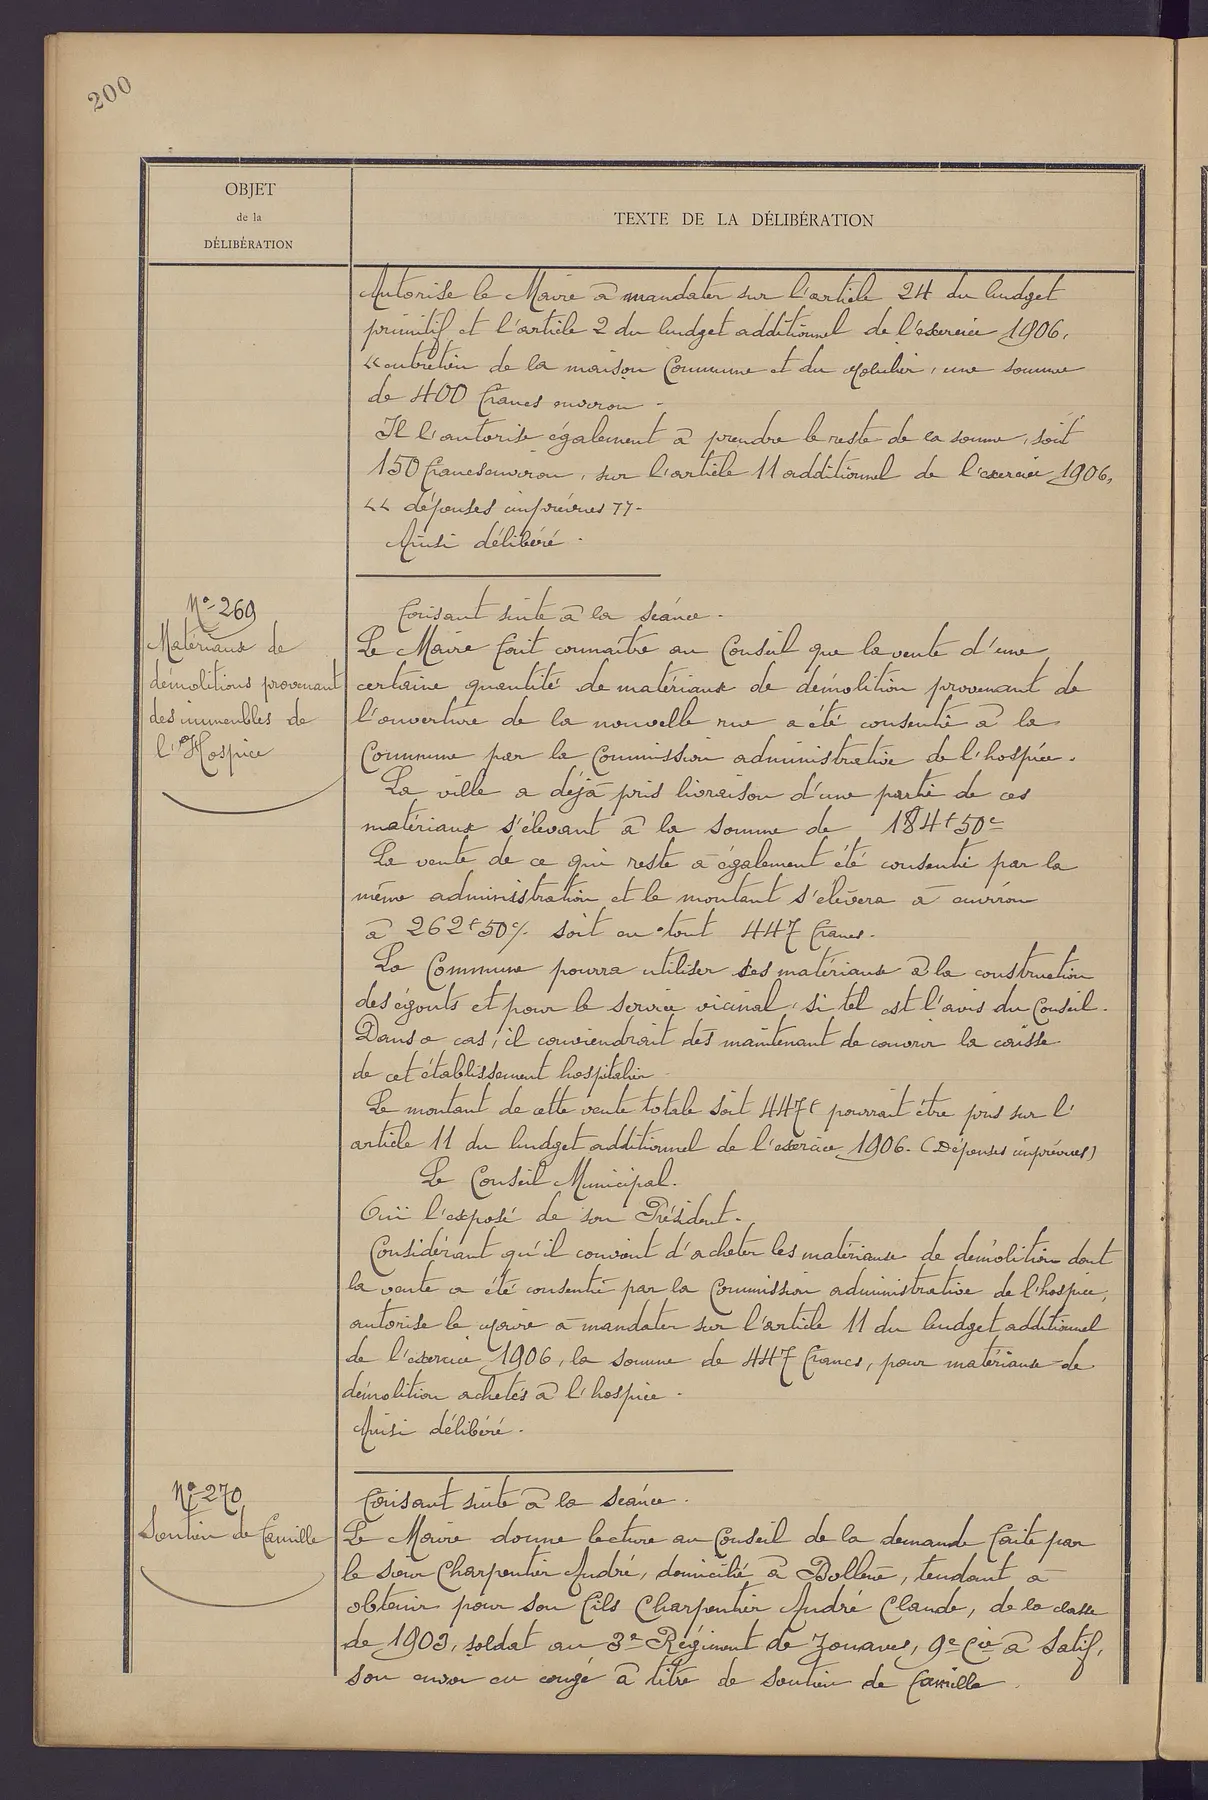 200
OBJET
de la
DÉLIBÉRATION
TEXTE DE LA DÉLIBÉRATION
Autorise le Maire à mandater sur l'article 24 du budget
primitif et l'article 2 du budget additionnel de l'exercice 1906,
"entretien de la maison Commune et du mobilier, une somme
de 400 francs environ.
Il l'autorise également à prendre le reste de la somme, soit
150 francs environ, sur l'article 11 additionnel de l'exercice 1906,
"dépenses imprévues".
Ainsi délibéré.
No 269
Matériaux de
démolitions provenant
des immeubles de
l'Hospice
Faisant suite à la séance.
Le Maire fait connaître au Conseil que la vente d'une
certaine quantité de matériaux de démolition provenant de
l'ouverture de la nouvelle rue a été consentie à la
Commune par la Commission administrative de l'hospice.
La ville a déjà pris livraison d'une partie de ces
matériaux s'élevant à la somme de 184f 50c
La vente de ce qui reste a également été consentie par la
même administration et le montant s'élèvera à environ
à 262f 50c/. soit en tout 447 francs.
La Commune pourra utiliser ses matériaux à la construction
des égouts et pour le service vicinal, si tel est l'avis du Conseil.
Dans ce cas, il conviendrait dès maintenant de couvrir la caisse
de cet établissement hospitalier
Le montant de cette vente totale soit 447f pourrait être pris sur l'
article 11 du budget additionnel de l'exercice 1906. (Dépenses imprévues)
Le Conseil Municipal.
Ouï l'exposé de son Président.
Considérant qu'il convient d'acheter les matériaux de démolition dont
la vente a été consentie par la Commission administrative de l'hospice,
autorise le Maire à mandater sur l'article 11 du budget additionnel
de l'exercice 1906, la somme de 447 francs, pour matériaux de
démolition achetés à l'hospice.
Ainsi délibéré.
No 270
Soutien de famille
Faisant suite à la séance.
Le Maire donne lecture au Conseil de la demande faite par
le sieur Charpentier André, domicilié à Bollène, tendant à
obtenir pour son fils Charpentier André Claude, de la classe
de 1903, soldat au 3e Régiment de Zouaves, 9e Cie à Satif,
son envoi en congé à titre de soutien de famille.